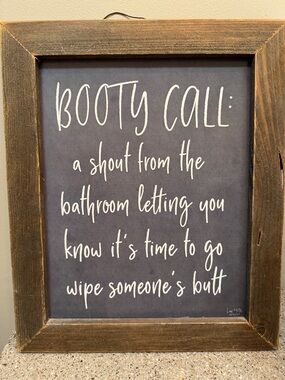 BOOTY CALL:
a shout from the
bathroom letting you
know it's time to go
wipe someone's butt